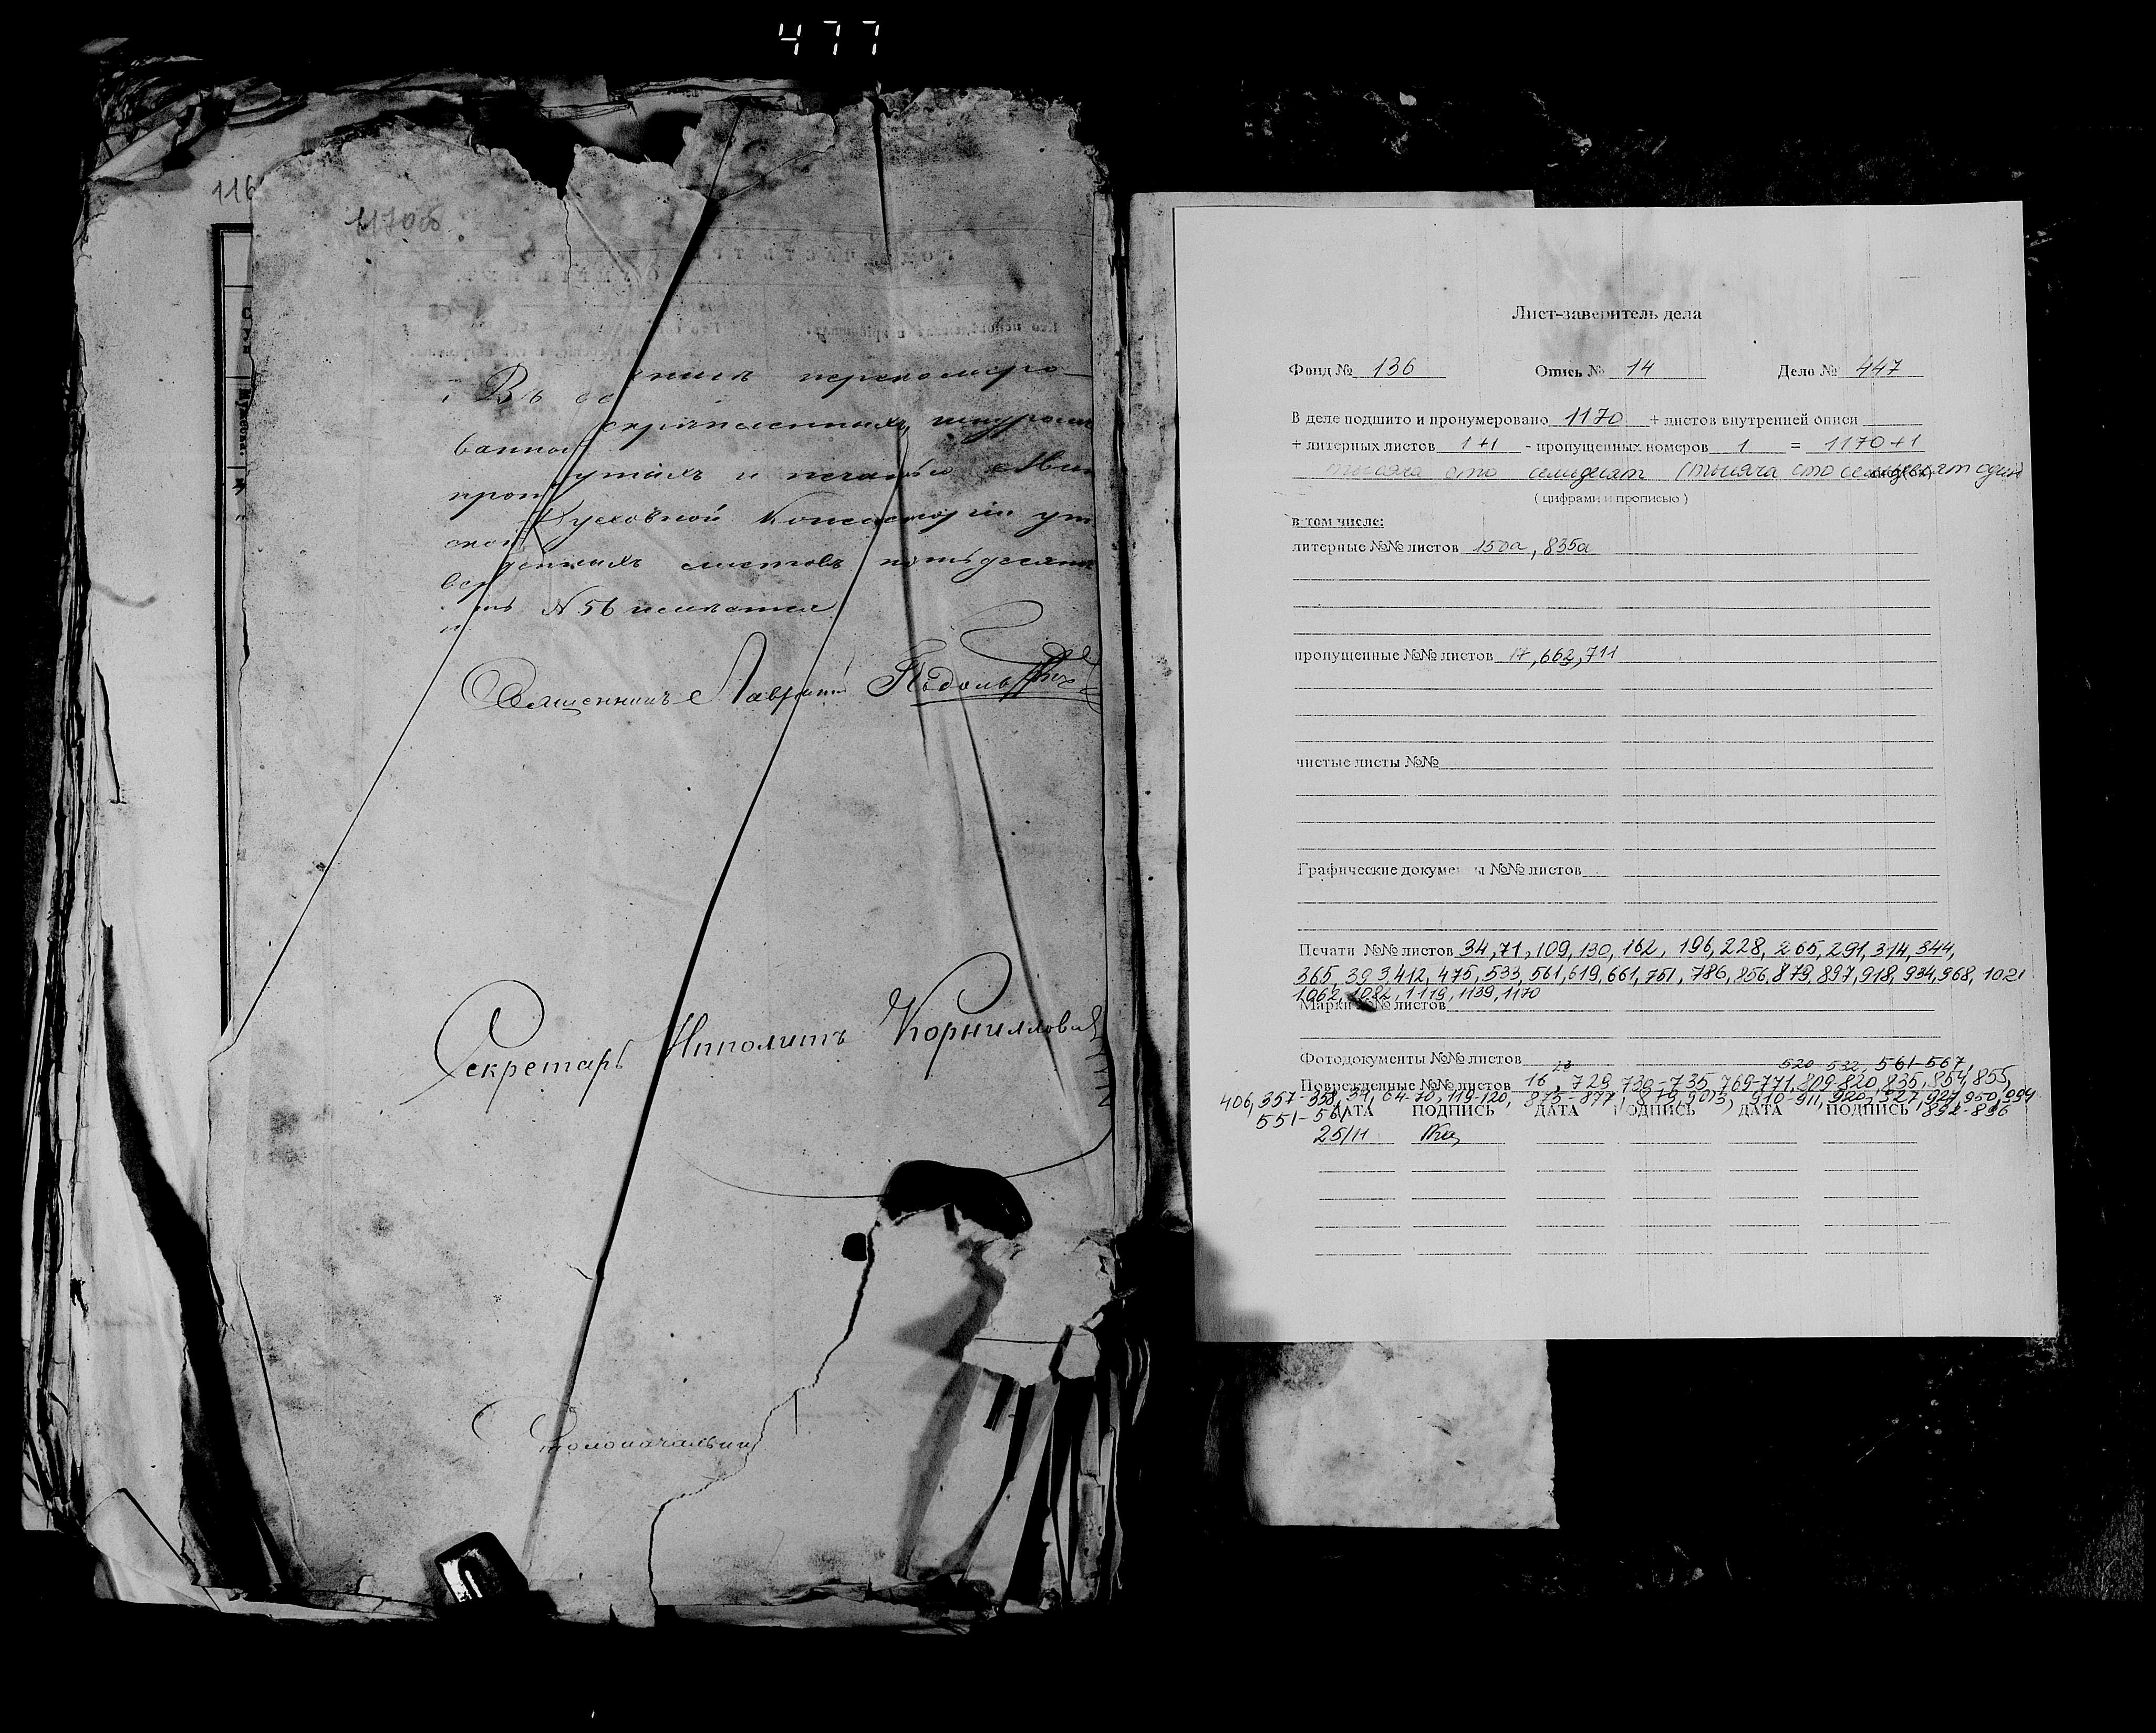 477
116
1170об
Въ се нихъ перенумеро-
ванных скрѣпленныхъ, шнуром
прон утыхъ и печатью Мин
ской Духовной Консисторіи ут
вер денныхъ листовъ пятьдесятъ
ть N 56 числится
Священникъ Лаврентій Подоль
Секретарь Ипполитъ Корниллови
Столоначальник
Лист-заверитель дела
Фонд № 136 Опись № 14 Дело № 447
В деле подшито и пронумеровано 1170 + листов внутренней описи
+ литерных листов 1+1 - пропущенных номеров 1 = 1170+1
тысяча сто семьдесят (тысяча сто семьдесят один
( цифрами и прописью )
в том числе:
литерные №№ листов 150а, 835а
пропущенные №№ листов 17, 662, 711
чистые листы №№
Графические документы №№ листов
Печати №№ листов 34, 71, 109, 130, 162, 196, 228, 265, 291, 314, 344,
365, 393, 412, 475, 533, 561, 619, 661, 751, 786, 856, 879, 897, 918, 934, 968, 1021
1062, 1082, 1119, 1139, 1170
Марки №№ листов
Фотодокументы №№ листов
520-532, 561-567,
Поврежденные №№ листов 16, 729, 730-735, 769-771, 809-820, 835, 854, 855,
406, 357-358, 34, 64-70, 119-120, 875-877, 879, 903, 910-911, 920, 927, 950, 994
551-56 ДАТА ПОДПИСЬ ДАТА ПОДПИСЬ ДАТА ПОДПИСЬ 892-896
25/11